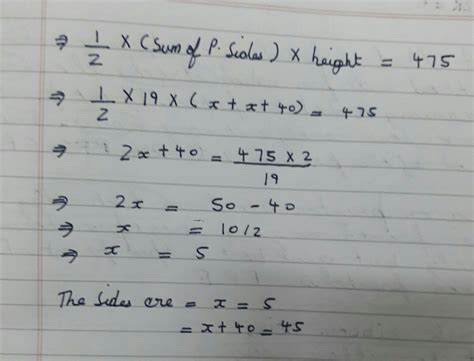 ⇒ 1/2 × (Sum of P. Sides) × height = 475
⇒ 1/2 × 19 × (x + x + 40) = 475
⇒ 2x + 40 = 475 × 2 / 19
⇒ 2x = 50 - 40
⇒ x = 10/2
⇒ x = 5
The sides are = x = 5
= x + 40 = 45